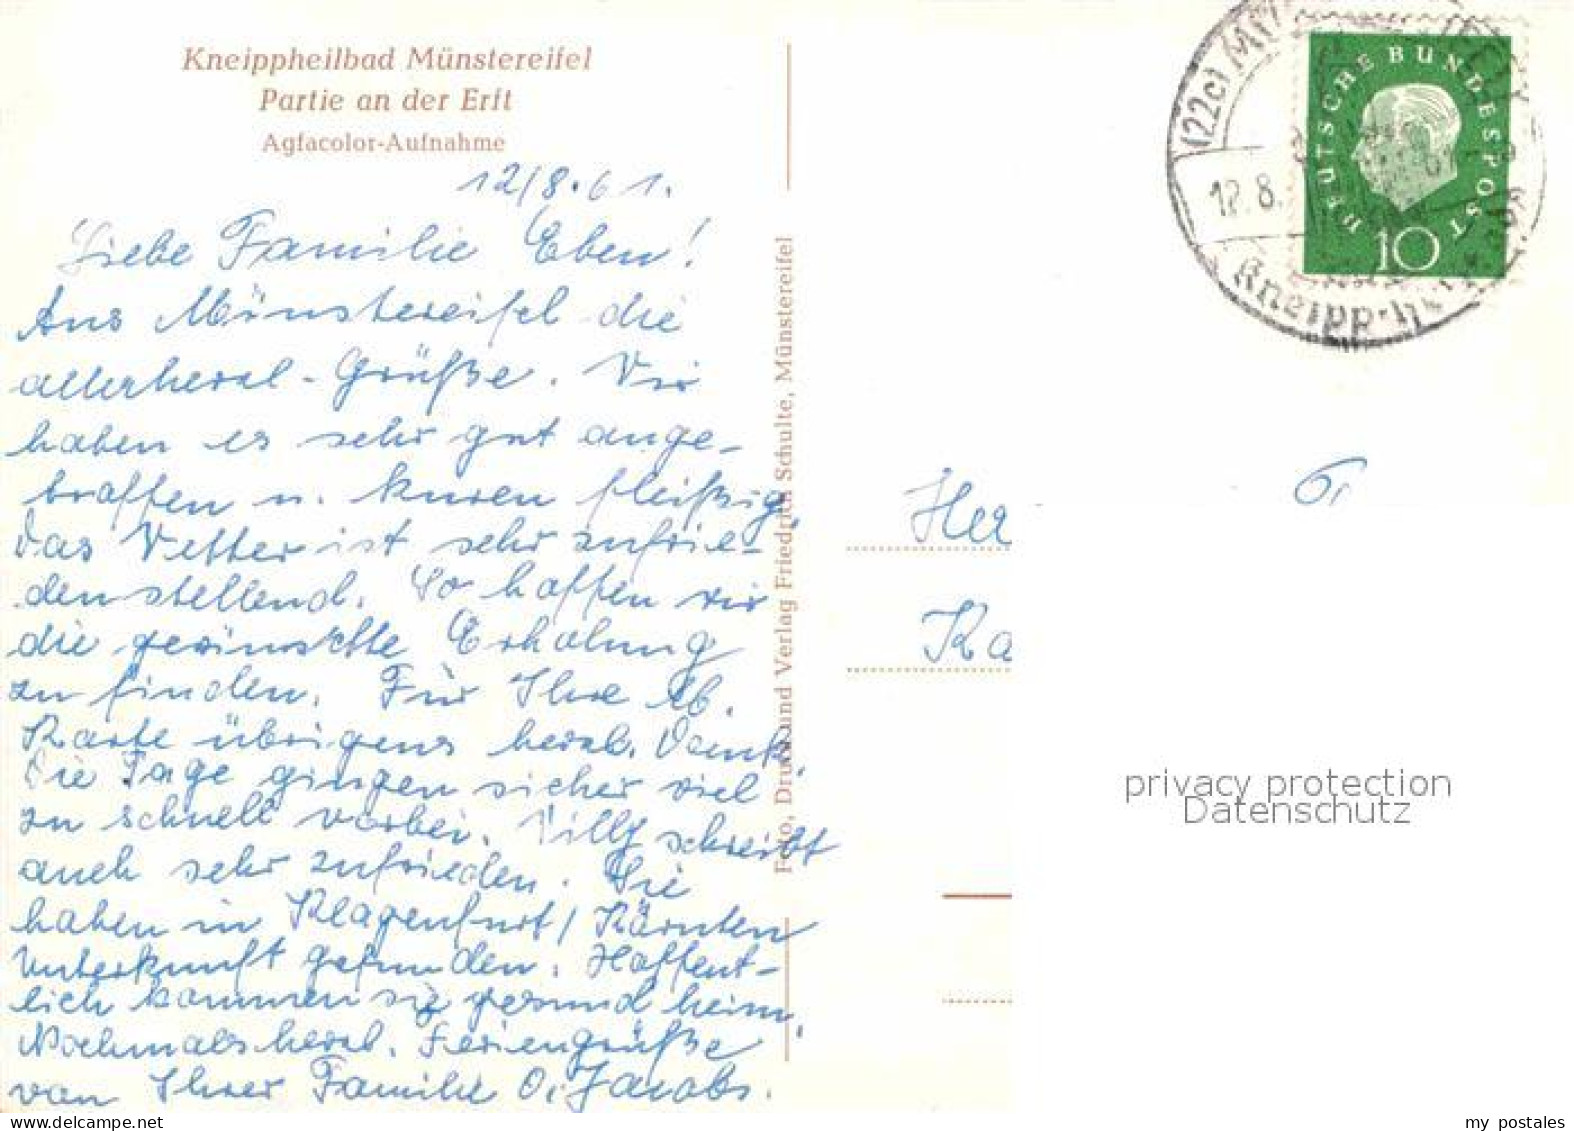 Kneippheilbad Münstereifel
Partie an der Erft
Agfacolor-Aufnahme
12/8.61.
Liebe Familie Eben!
Aus Münstereifel die
allerherzl. Grüße. Wir
haben es sehr gut ange-
troffen u. kuren fleißig.
Das Wetter ist sehr zufrie-
denstellend. So hoffen wir
die gewünschte Erholung
zu finden. Für Ihre lb.
Karte übrigens herzl. Dank.
Die Tage gingen sicher viel
zu schnell vorbei. Willy schreibt
auch sehr zufrieden. Sie
haben in Klagenfurt/Kärnten
Unterkunft gefunden. Hoffent-
lich kommen sie gesund heim.
Nochmals herzl. Feriengrüße
von Ihrer Familie O. Jacobs.
Foto, Druck und Verlag Friedrich Schulte, Münstereifel
(22c) M
12.8.
Kneipp-
DEUTSCHE BUNDESPOST
10
Her
Ka
privacy protection
Datenschutz
my postales